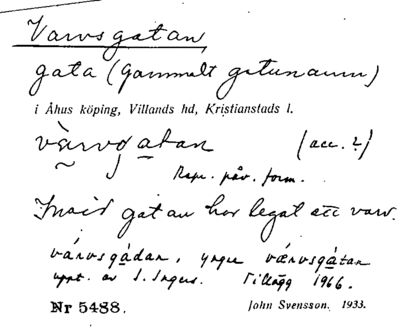 Varvsgatan
gata (Gammalt gatunamn)
i Åhus köping, Villands hd, Kristianstads l.
värvgatan (acc. 2)
Repr. påv. form.
Invid gatan har legat ett varv.
várvsgådan, yngre várvsgåtan
uppt. av I. Ingers. Tillägg 1966.
Nr 5488. John Svensson. 1933.